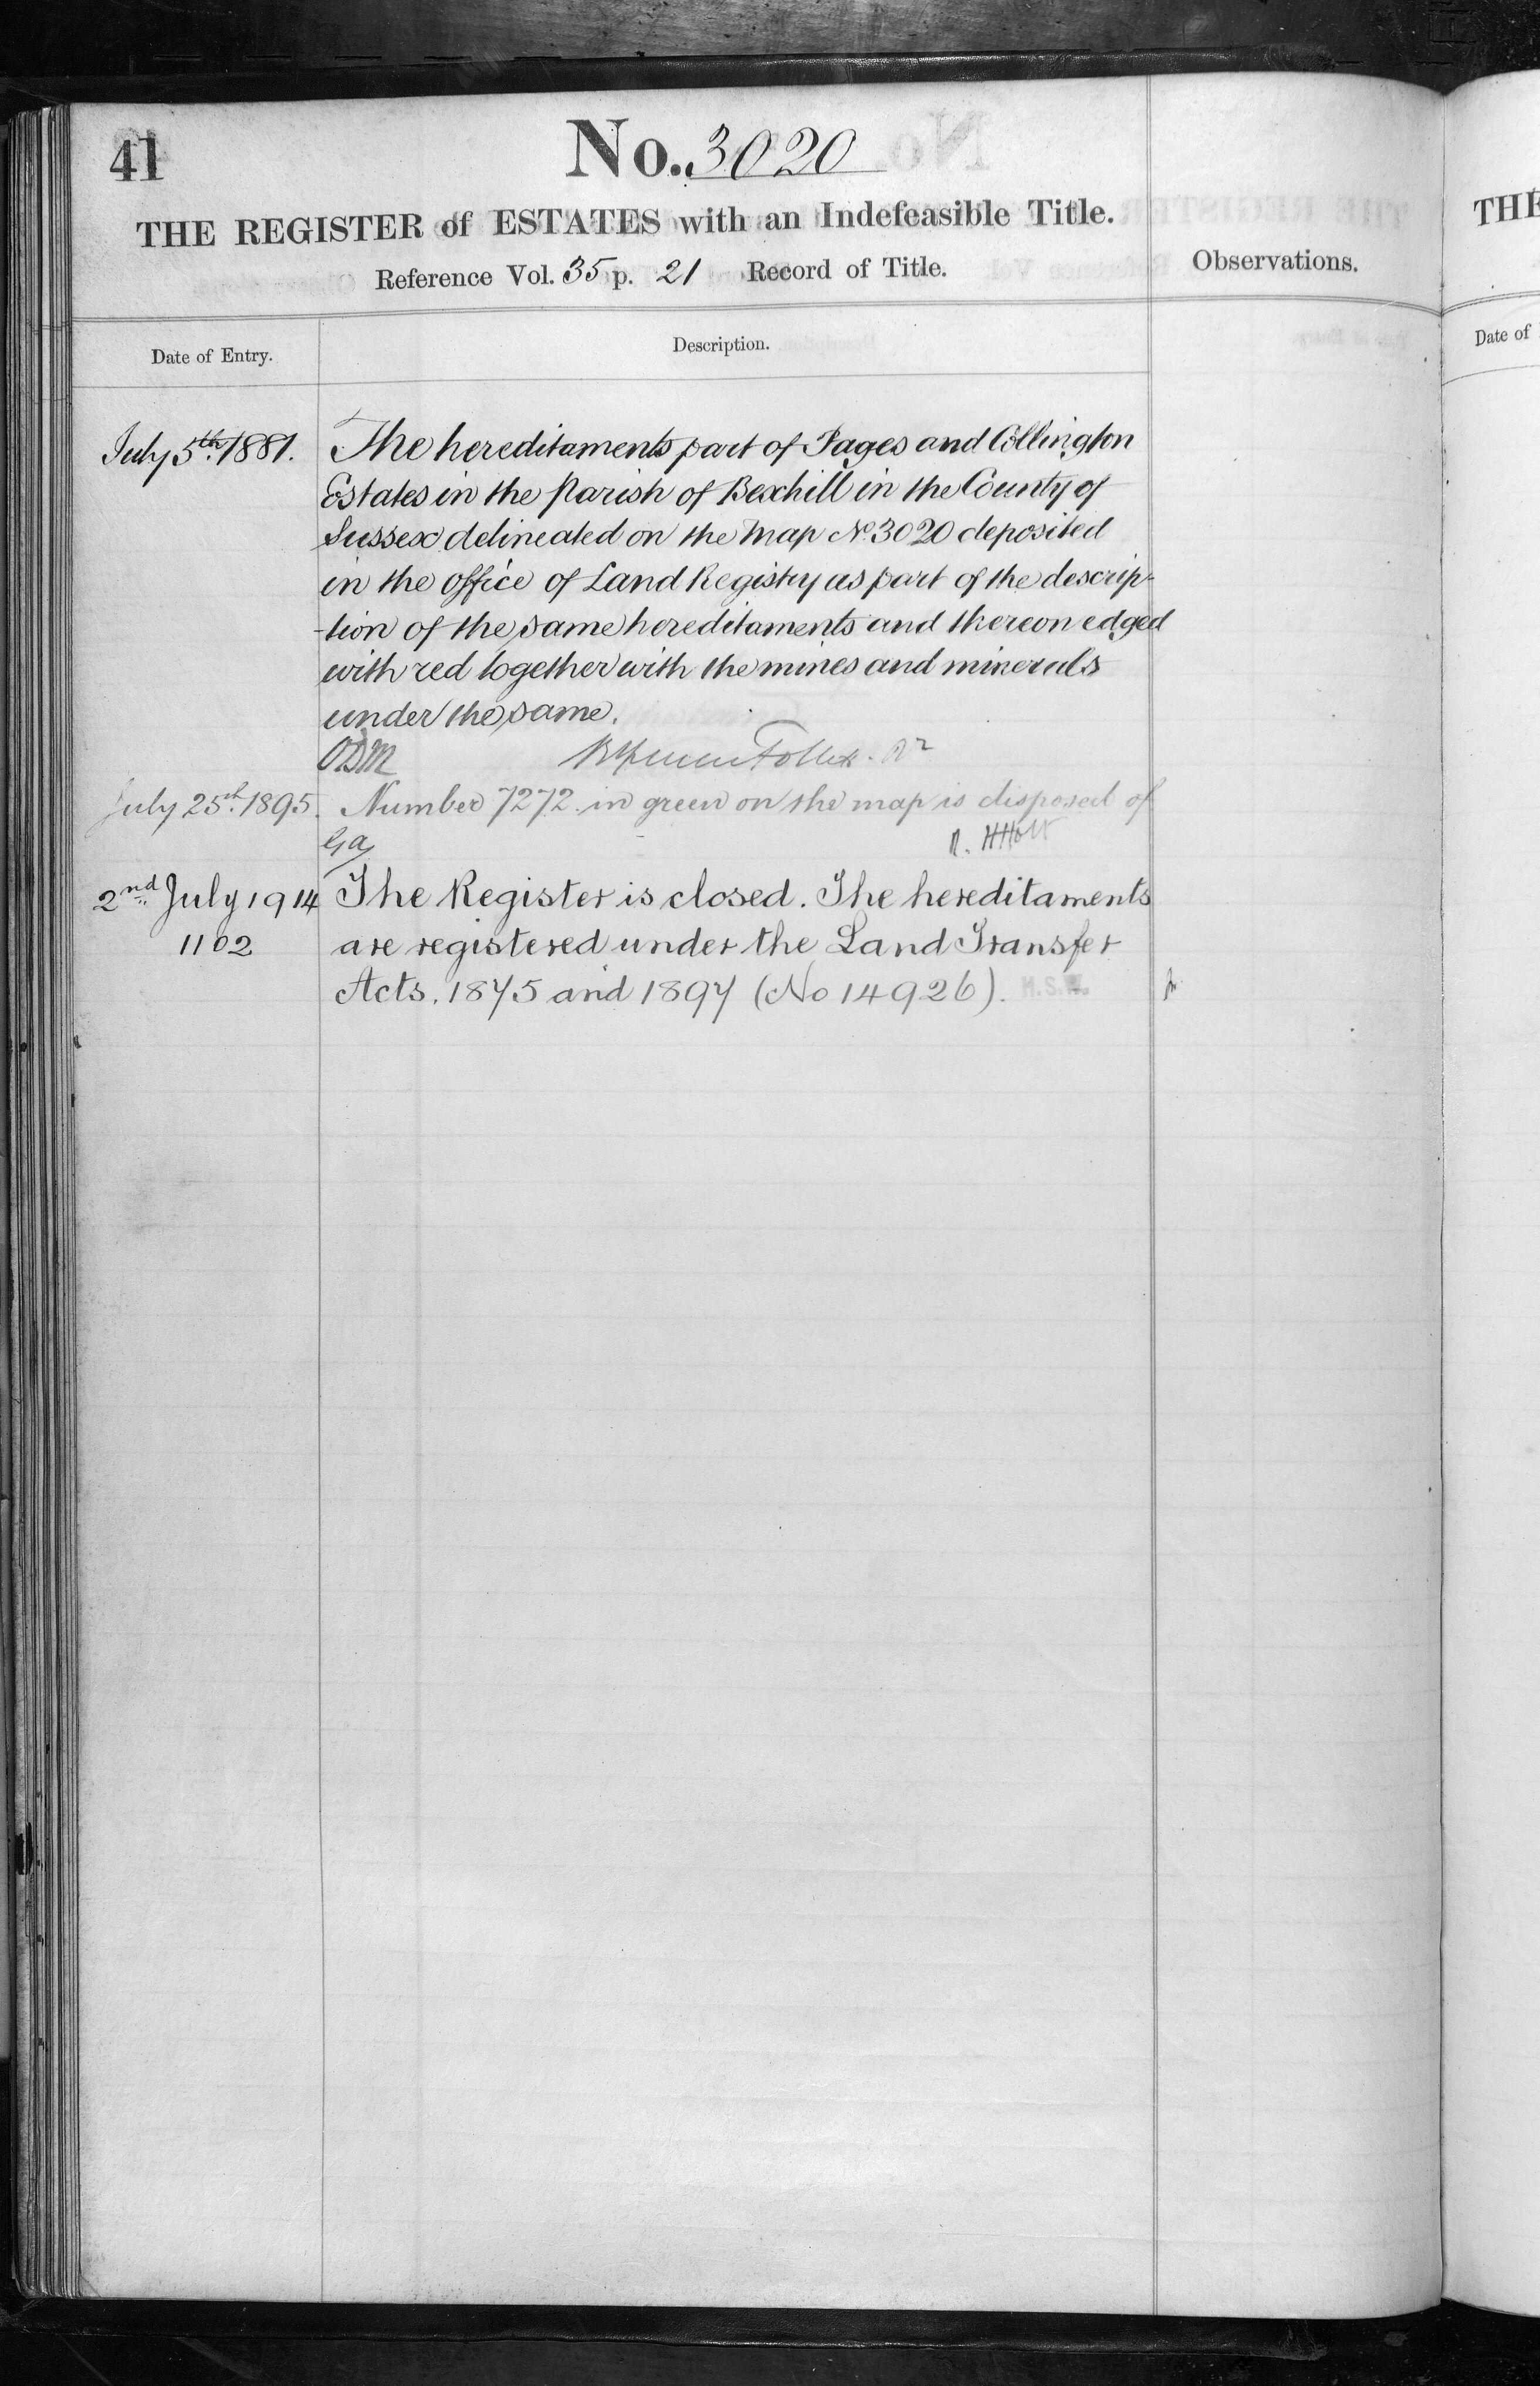 41
No. 3020
THE REGISTER of ESTATES with an Indefeasible Title.
Reference Vol. 35 p. 21 Record of Title.
Observations.
Date of Entry.
Description.
July 5th. 1881.
The hereditaments part of Pages and Collington
Estates in the Parish of Bexhill in the County of
Sussex delineated on the Map No. 3020 deposited
in the office of Land Registry as part of the descrip-
-tion of the same hereditaments and thereon edged
with red together with the mines and minerals
under the same.
ODM
July 25th. 1895.
Number 7272 in green on the map is disposed of
R. H Holt
2nd July 1914
The Register is closed. The hereditaments
1102
are registered under the Land Transfer
Acts, 1875 and 1897 (No 14926).
THE
Date of